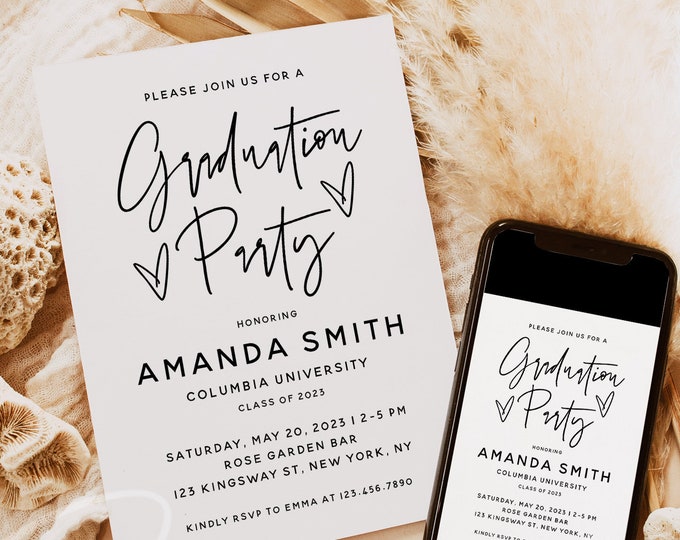 PLEASE JOIN US FOR A
Graduation
Party
HONORING
AMANDA SMITH
COLUMBIA UNIVERSITY
CLASS OF 2023
SATURDAY, MAY 20, 2023 | 2-5 PM
ROSE GARDEN BAR
123 KINGSWAY ST, NEW YORK, NY
KINDLY RSVP TO EMMA AT 123.456.7890
PLEASE JOIN US FOR A
Graduation
Party
HONORING
AMANDA SMITH
COLUMBIA UNIVERSITY
CLASS OF 2023
SATURDAY, MAY 20, 2023 | 2-5 PM
ROSE GARDEN BAR
123 KINGSWAY ST, NEW YORK, NY
KINDLY RSVP TO EMMA AT 123.456.7890